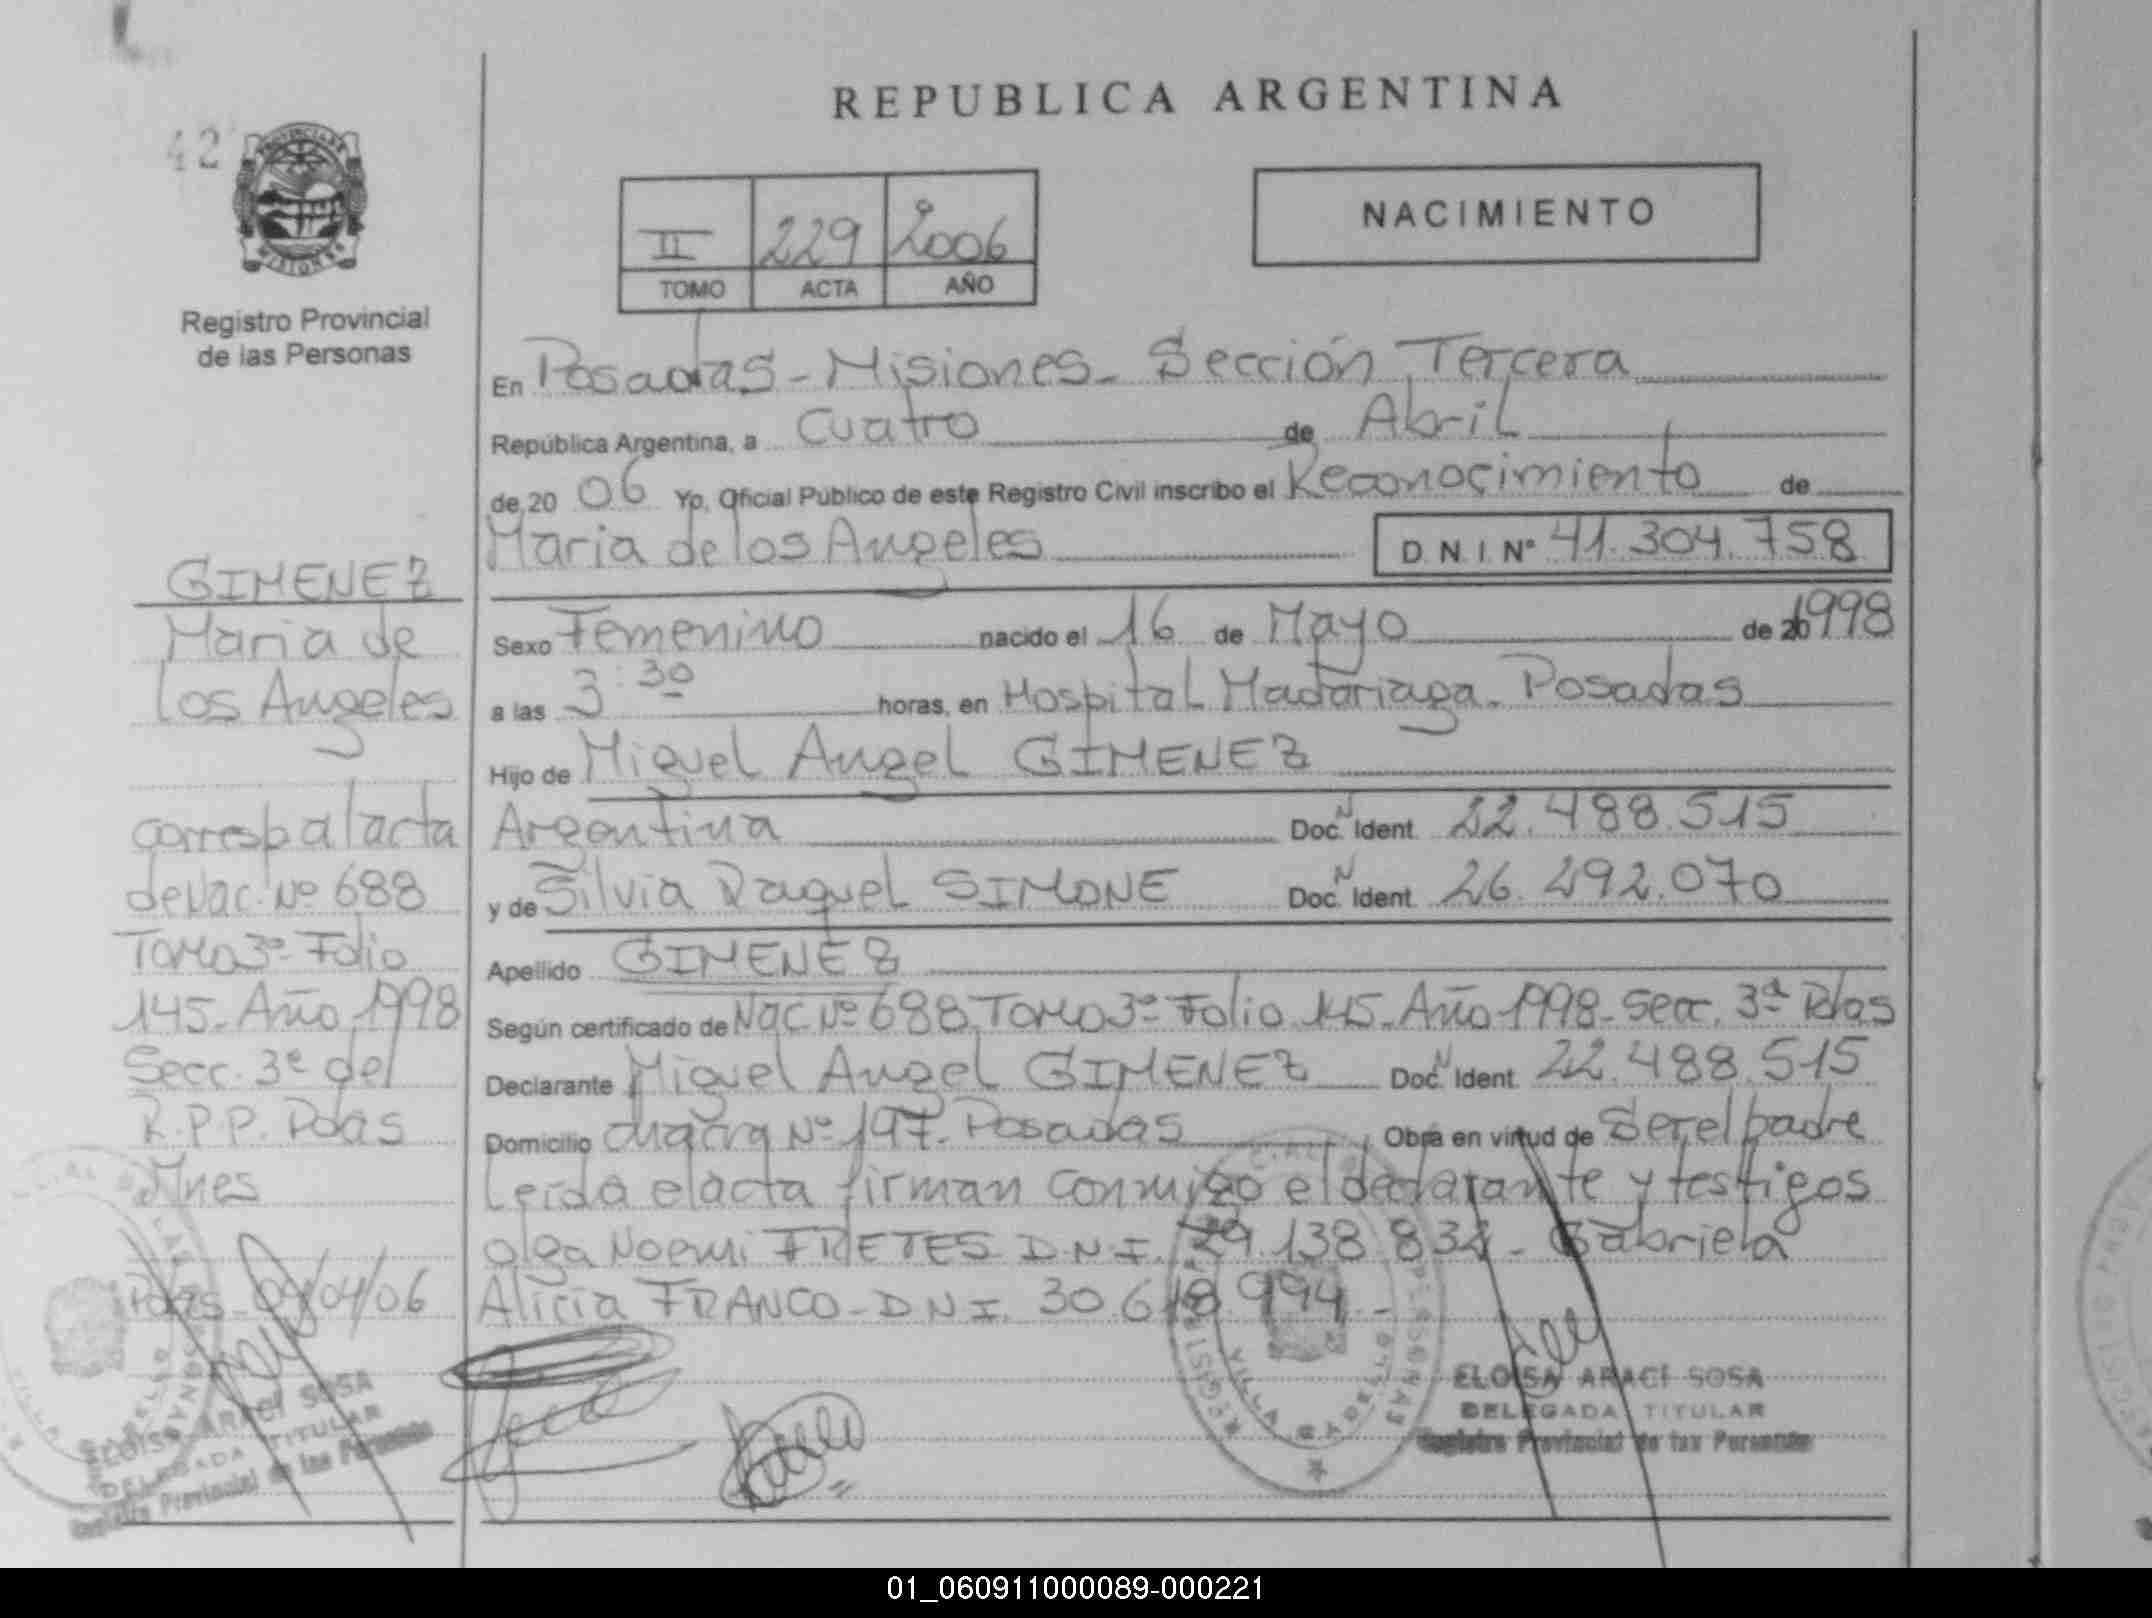 REPUBLICA ARGENTINA
42
PROVINCIA DE
MISIONES
Registro Provincial
de las Personas
II 229 2006
TOMO ACTA AÑO
NACIMIENTO
En Posadas - Misiones - Sección Tercera
República Argentina, a Cuatro de Abril
de 20 06 Yo, Oficial Público de este Registro Civil inscribo el Reconocimiento de
Maria de los Angeles D.N.I. Nº 41.304.758
Sexo Femenino nacido el 16 de Mayo de 1998
a las 3:30 horas, en Hospital Madariaga. Posadas
Hijo de Miguel Angel GIMENEZ
Argentina Doc. N Ident. 22.488.515
y de Silvia Raquel SIMONE Doc. N Ident. 26.292.070
Apellido GIMENEZ
Según certificado de Nac. Nº 688 Tomo 3º Folio 145. Año 1998. Secc. 3ª Pdas
Declarante Miguel Angel GIMENEZ Doc. N Ident. 22.488.515
Domicilio chacra Nº 197. Posadas Obra en virtud de Ser el padre
Leída el acta firman conmigo el declarante y testigos
Olga Noemi FRETES D.N.I. 29.138.834 - Gabriela
Alicia FRANCO - DNI. 30.618.994 -
ELOISA ARACÍ SOSA
DELEGADA TITULAR
Registro Provincial de las Personas
GIMENEZ
Maria de
los Angeles
corresp al acta
de Nac. Nº 688
Tomo 3º Folio
145. Año 1998
Secc. 3ª del
R.P.P. Pdas
Mnes
Pdas 04/04/06
ELOISA ARACÍ SOSA
DELEGADA TITULAR
Registro Provincial de las Personas
01_060911000089-000221